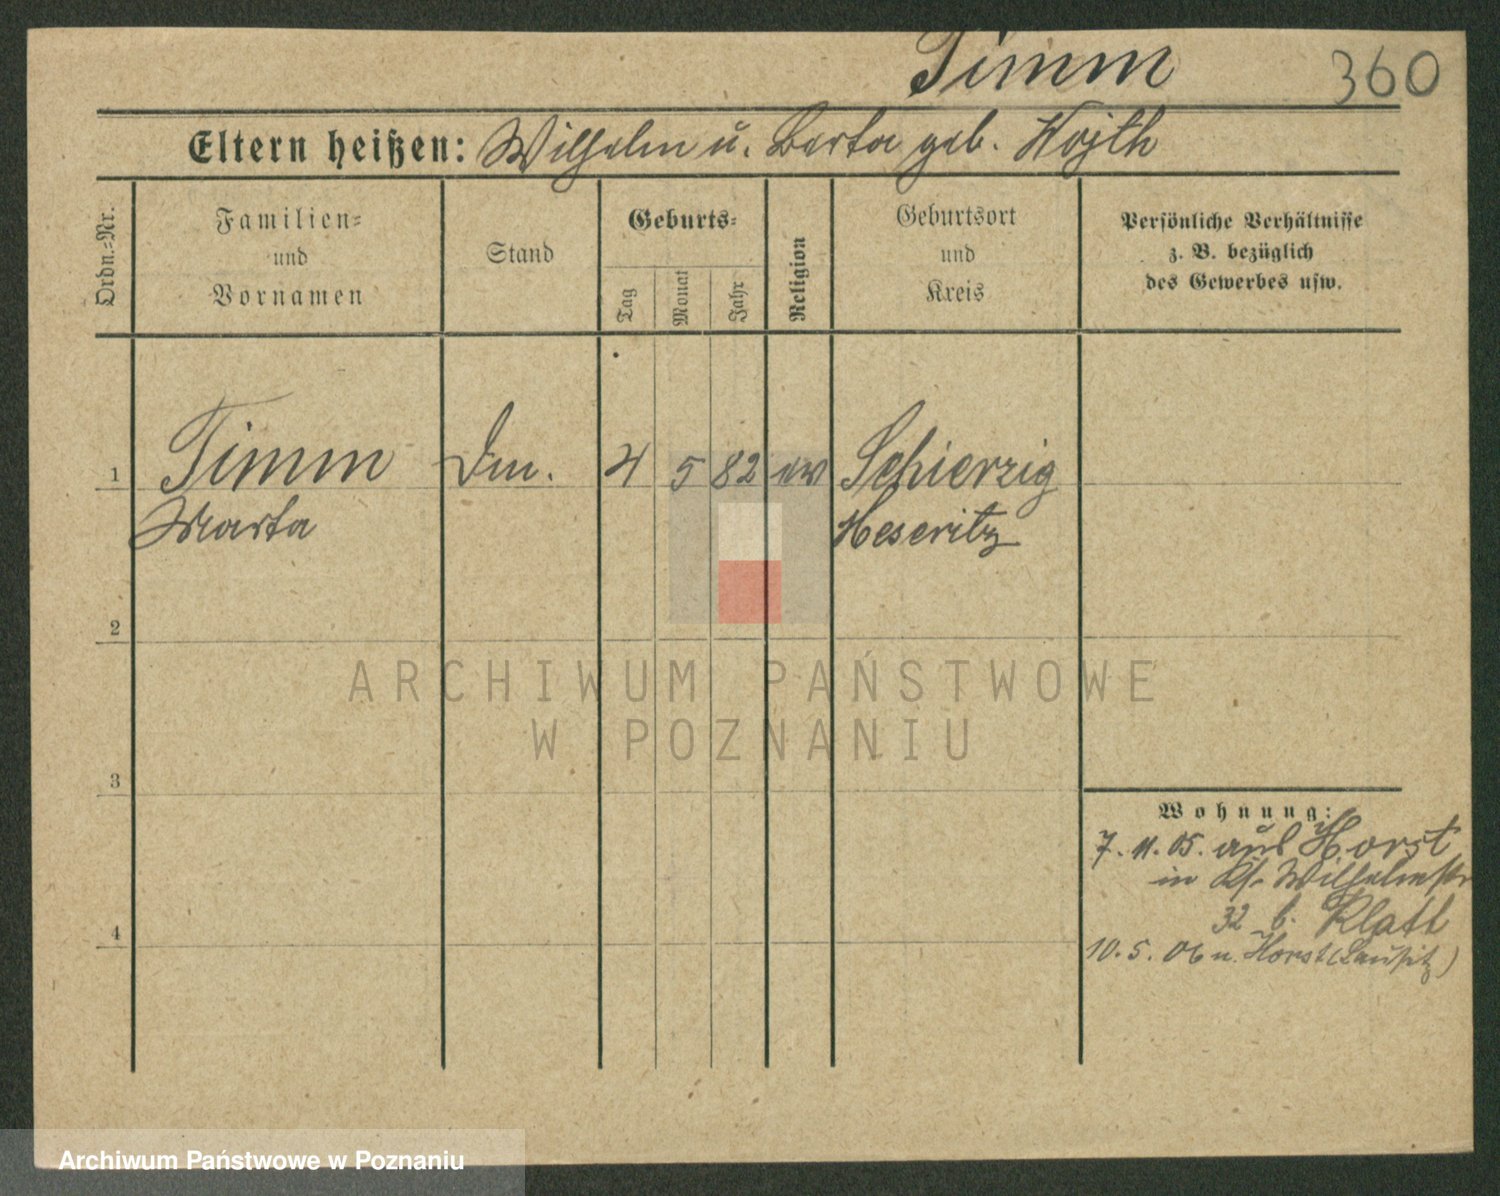 Timm 360
Eltern heißen: Wilhelm u. Berta geb. Wojth
Ordn.=Nr.
Familien=
und
Vornamen
Stand
Geburts=
Tag
Monat
Jahr
Religion
Geburtsort
und
Kreis
Persönliche Verhältnisse
z. B. bezüglich
des Gewerbes usw.
1 Timm 4 5 82 ev Schierzig
Marta Meseritz
2
3
4
Wohnung:
7. 11. 05. aus Horst
in Wilhelmstr
32 b. Klatt
10. 5. 06 n. Horst (Lausitz)
ARCHIWUM PAŃSTWOWE
W POZNANIU
Archiwum Państwowe w Poznaniu